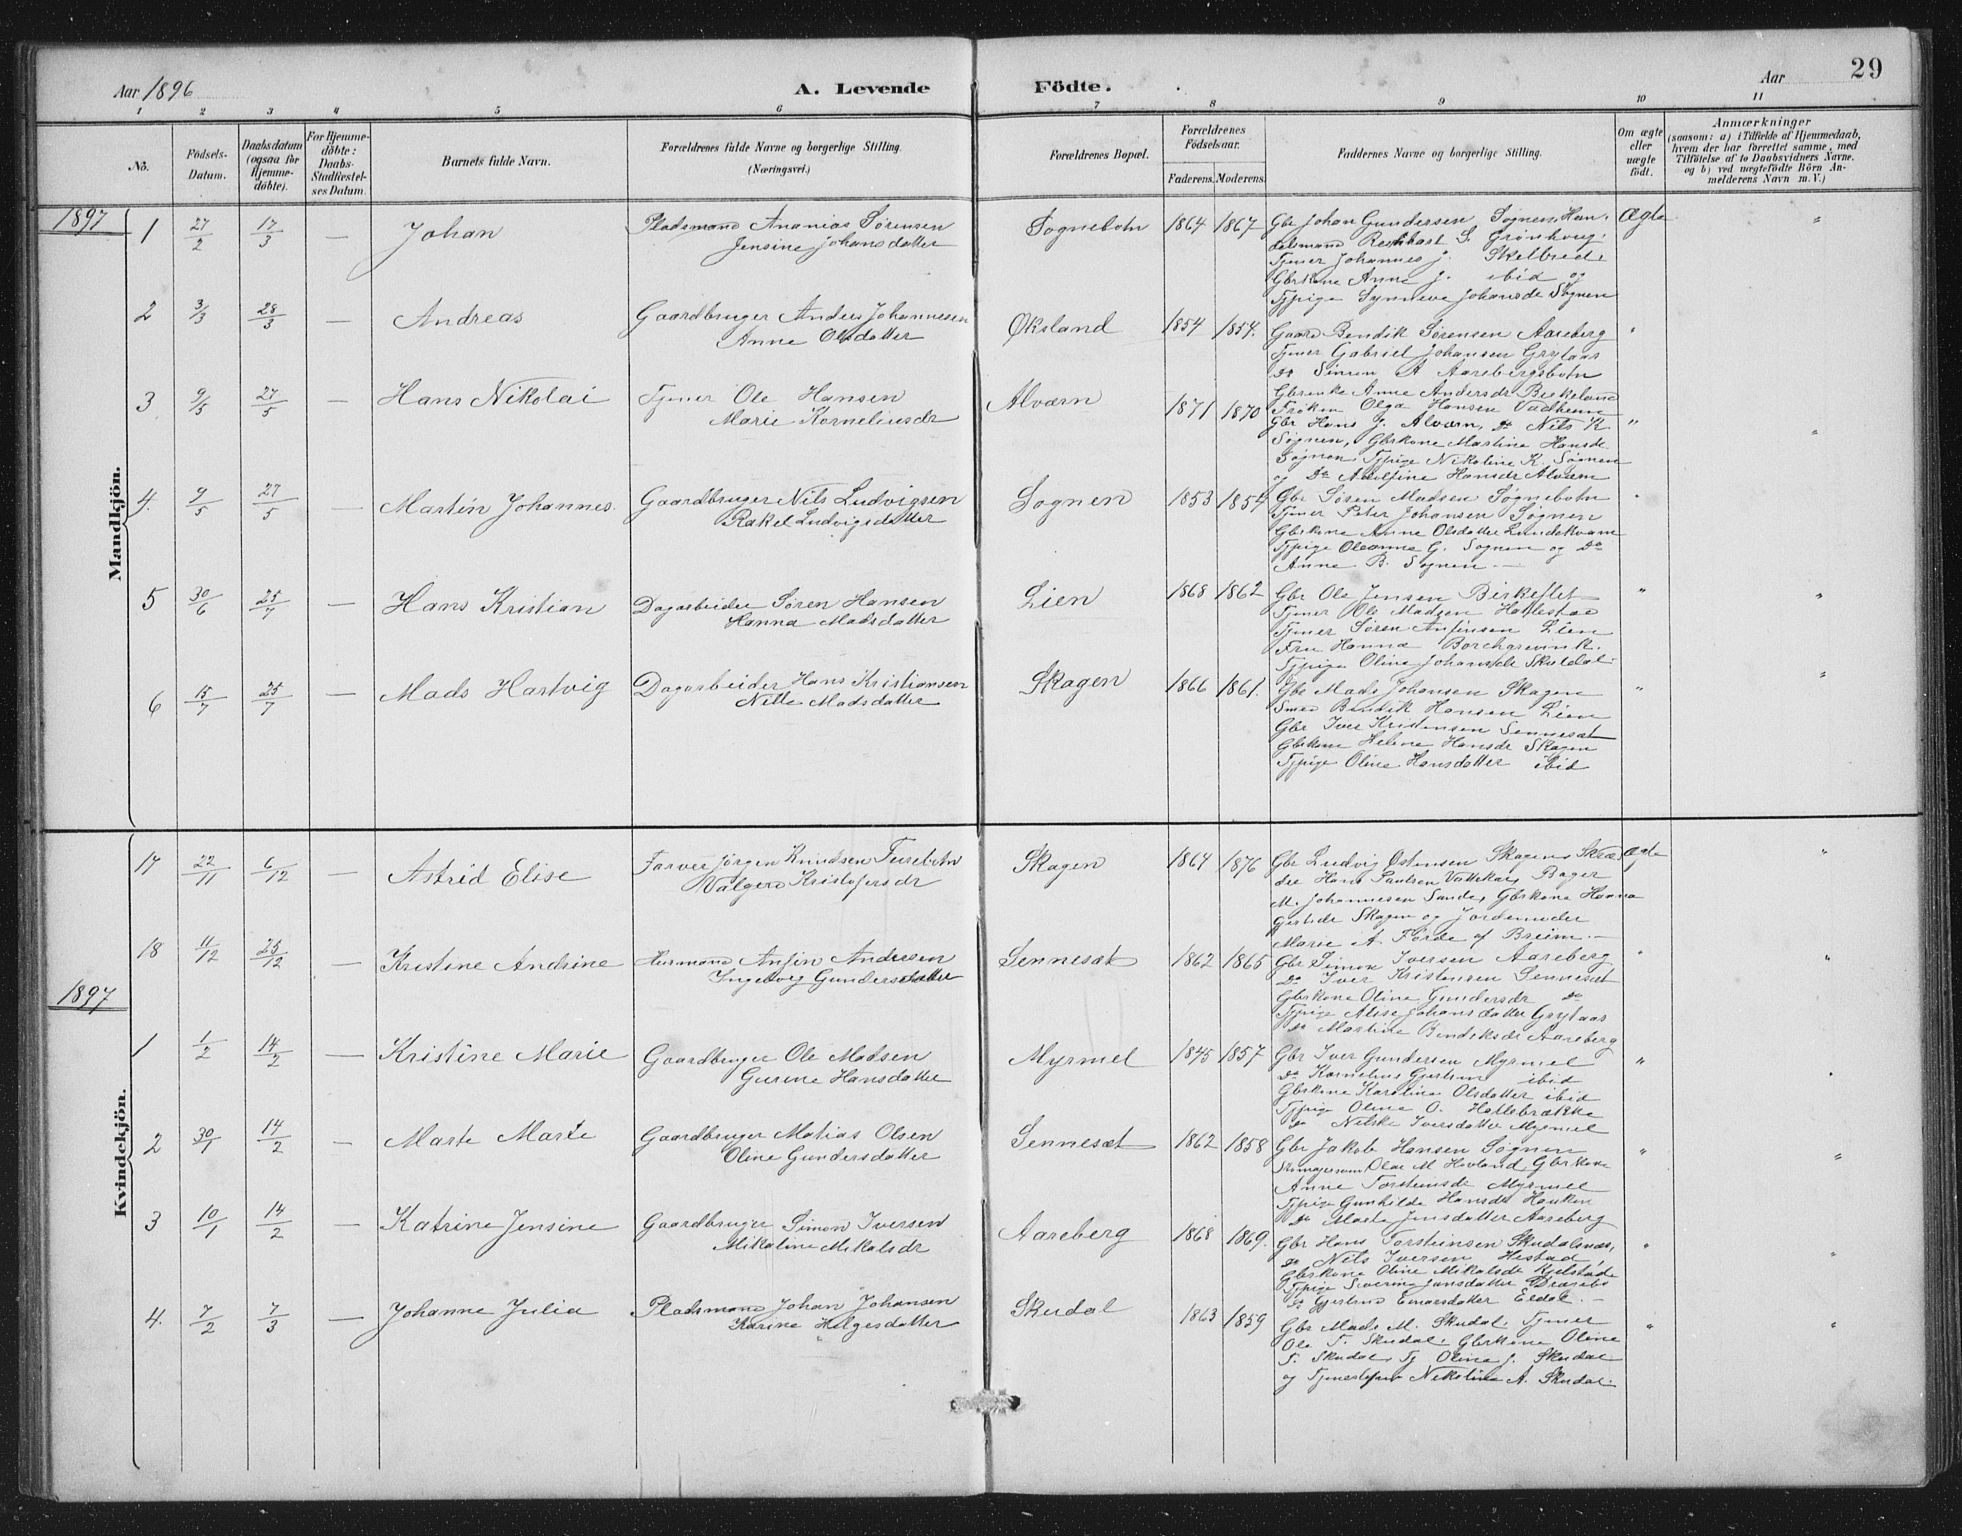 Aar 1896
A. Levende Födte.
Aar
29
1 2 3 4 5 6 7 8 9 10 11
No.
Födsels-
Datum.
Daabsdatum
(ogsaa for
Hjemme-
döbte).
For Hjemme-
döbte:
Daabs-
Stadfæstel-
ses Datum.
Barnets fulde Navn.
Forældrenes fulde Navne og borgerlige Stilling.
(Næringsvei.)
Forældrenes Bopæl.
Forældrenes
Födselsaar.
Faderens. Moderens.
Faddernes Navne og borgerlige Stilling.
Om ægte
eller
uægte
födt.
Anmærkninger
(saasom: a) i Tilfælde af Hjemmedaab,
hvem der har forrettet samme, med
Tilföielse af to Daabsvidners Navne.
og b) ved uægtefödte Börn An-
melderens Navn m. V.)
Mandkjön.
1897
1 27/2 17/3 — Johan
Pladsmand Ananias Sørensen
Jensine Johansdatter
Sognebotn 1864 1867
Gbr Johan Gundersen Sognen, Han-
delsmand S. Grønhaug,
Tjener Johannes J. Skilbred,
Gbrkone Anne J. ibid og
Tjpige Synneve Johansdr Sognen
Ægte "
2 3/3 28/3 — Andreas
Gaardbruger Anders Johannesen
Anne Olsdatter
Øksland 1854 1854.
Gaard Bendik Sørensen Aareberg
Tjener Gabriel Johansen Grytaas
Do Simen A Aarebergsbotn
Gbrenke Anne Andersdr Birkeland
Frøken Olga Hansen Vadheim
"
3 9/5 27/5 — Hans Nikolai
Tjener Ole Hansen
Marie Korneliusdr
Alværn 1871 1870
Gbr Hans J. Alværn, Do Nils K.
Sognen, Gbrkone Martine Hansdr
Sognen, Tjpige Nikoline K. Sognen
og Do Hansdr Alværn
" "
4. 9/5 27/5 — Martin Johannes.
Gaardbruger Nils Ludvigsen
Rakel Ludvigsdatter
Sognen 1853 1854
Gbr Søren Madsen Sognebotn
Tjener Peter Johansen Sognen
Gbrkone Anne Olsdatter Lundekvam
Tjpige Oleanne G. Sognen og Do
Anne B. Sognen —
"
5 30/6 25/7 — Hans Kristian
Dagarbeider Søren Hansen
Hanna Madsdatter
Lien 1868 1862
Gbr Ole Jensen Birkeflet
Tjener Ole Madsen Hatlestad
Tjener Søren Anfinsen Lien
Fru Hanna Borchgrevink.
Tjpige Oline Johansdr Skuldal.
" "
6 15/7 25/7 — Mads Hartvig
Dagarbeider Hans Kristiansen
Nille Madsdatter
Skagen 1866 1861.
Gbr Mads Johansen Skagen
Smed Bendik Hansen Lien
Gbr Iver Kristensen Sennesæt
Gbrkone Helene Hansdr Skagen
Tjpige Oline Hansdatter ibid
" "
Kvindekjön.
17 22/11 6/12 — Astrid Elise
Farver Jørgen Knudsen Terrebotn
Valgerd Kristofersdr
Skagen 1864 1876
Gbr Ludvig Østensen Skagen, Skræ-
der Hans Paulsen Vattekar, Bager
M. Johannesen Sande, Gbrkone Hanna
Skagen og Jordemoder
Marie A. Førde af Breim. —
Ægte "
18 11/12 25/12 — Kristine Andrine
Husmand Anfin Andersen
Ingeborg Gundersdatter
Sennesæt 1862 1865
Gbr Simon Iversen Aareberg
Do Iver Kristensen Sennesæt
Gbrkone Oline Gundersdr Do
Tjpige Alise Johansdatter Grytaas
Do Martine Bendiksdr Aareberg
" "
1897
1 1/2 14/2 — Kristine Marie
Gaardbruger Ole Madsen
Gurine Hansdatter
Myrmel 1845 1857
Gbr Iver Gundersen Myrmel
Do Kornelius ibid
Gbrkone Karoline Olsdatter ibid
Tjpige Oline O. Hatlebrække
Do Nilske Iversdatter Myrmel
"
2 30/1 14/2 — Marte Marie
Gaardbruger Matias Olsen
Oline Gundersdatter
Sennesæt 1862 1858
Gbr Jakob Hansen Sognen
Olai M. Hovland, Gbrkone
Anne Torsteinsdr Myrmel
Tjpige Gunhilde Hansdr Hauken
Do Marta Jensdatter Aareberg
" "
3 10/1 14/2 — Katrine Jensine
Gaardbruger Simon Iversen
Mikaline Mikalsdr
Aareberg 1868 1869.
Gbr Hans Torsteinsen Skudalsnæs,
Do Nils Iversen Hestad
Gbrkone Oline Mikalsdr Kjelstad
Tjpige Severine Jansdatter
Do Gjertrud Einarsdatter Eldal. —
" "
4. 7/2 7/3 — Johanne Julia
Pladsmand Johan Johansen
Karine Helgesdatter
Skudal 1863 1859
Gbr Mads M. Skudal, Tjener
Ole T. Skudal, Gbrkone Oline
T. Skudal, Tj Oline J. Skudal
og Nikoline A. Skudal.
" "